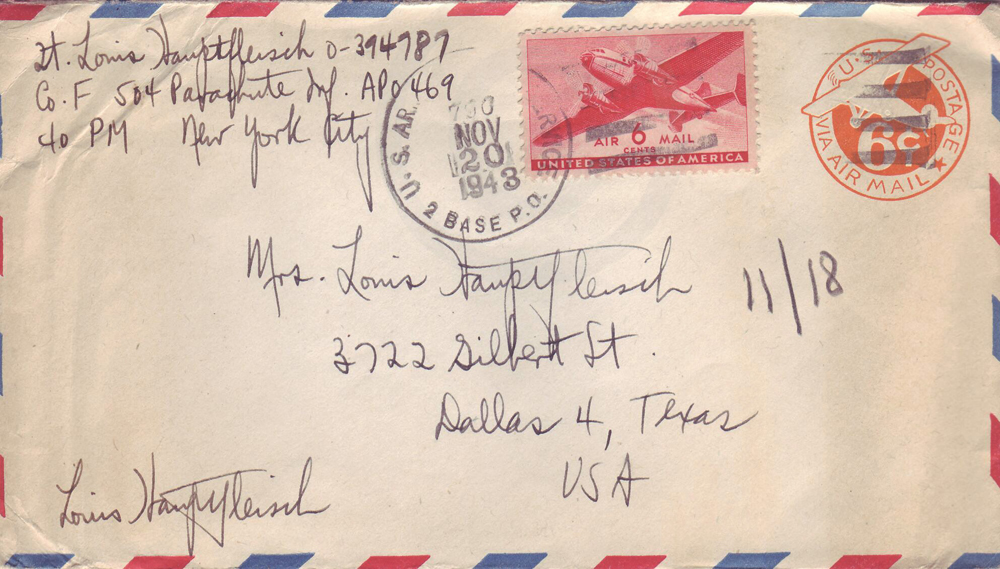 Lt. Louis Hauptfleisch O-394787
Co. F 504 Parachute Inf. APO 469
c/o PM New York City
U.S. AR
2 BASE P.O.
NOV
20
1943
AIR 6 MAIL
CENTS
UNITED STATES OF AMERICA
U.S. POSTAGE
6c
VIA AIR MAIL
Mrs. Louis Hauptfleisch
11/18
3722 Gilbert St.
Dallas 4, Texas
USA
Louis Hauptfleisch